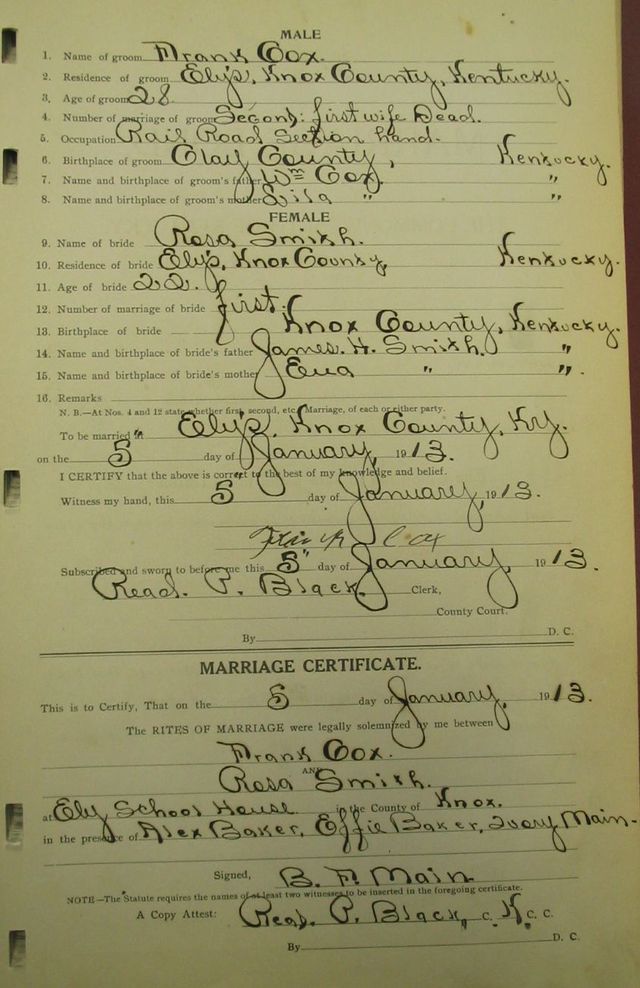 MALE
1. Name of groom Frank Cox.
2. Residence of groom Elys, Knox County, Kentucky.
3. Age of groom 28
4. Number of marriage of groom Second: first wife Dead.
5. Occupation Rail Road Section hand.
6. Birthplace of groom Clay County, Kentucky.
7. Name and birthplace of groom's father Wm Cox. "
8. Name and birthplace of groom's mother " "
FEMALE
9. Name of bride Rosa Smith.
10. Residence of bride Elys, Knox County, Kentucky.
11. Age of bride 22.
12. Number of marriage of bride first.
13. Birthplace of bride Knox County, Kentucky.
14. Name and birthplace of bride's father James. H. Smith. "
15. Name and birthplace of bride's mother " ".
16. Remarks
N. B.—At Nos. 4 and 12 state whether first, second, etc., Marriage, of each or either party.
To be married at Elys, Knox County, Ky.
on the 5 day of January, 1913.
I CERTIFY that the above is correct to the best of my knowledge and belief.
Witness my hand, this 5 day of January, 1913.
Frank Cox
Subscribed and sworn to before me this 5" day of January, 1913.
Read. P. Black. Clerk,
County Court.
By D. C.
MARRIAGE CERTIFICATE.
This is to Certify, That on the 5 day of January, 1913.
The RITES OF MARRIAGE were legally solemnized by me between
Frank Cox.
AND
Rosa Smith.
at Ely School House in the County of Knox.
in the presence of Alex Baker, Effie Baker, Ivory Main.
Signed, B. F. Main
NOTE—The Statute requires the names of at least two witnesses to be inserted in the foregoing certificate.
A Copy Attest: Read. P. Black, C. K. C. C.
By D. C.